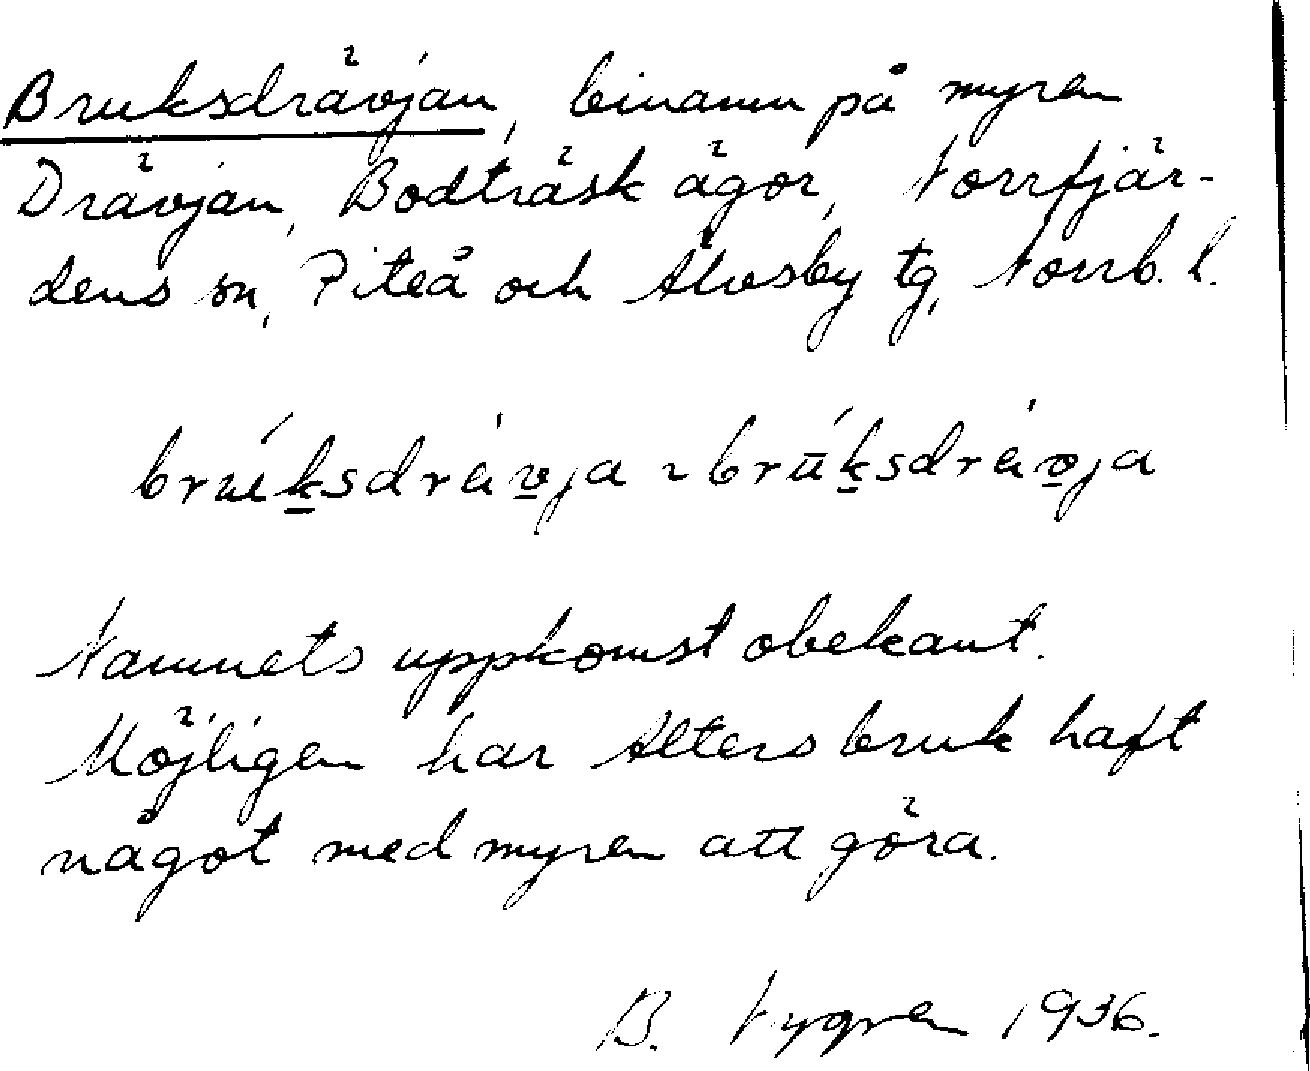 Bruksdrävjan, binamn på myren
Drävjan, Bodträsk ägor, Norrfjär-
dens sn, Piteå och Älvsby tg, Norrb. l.
Namnets uppkomst obekant.
Möjligen har Alters bruk haft
något med myren att göra.
B. Nygren 1936.